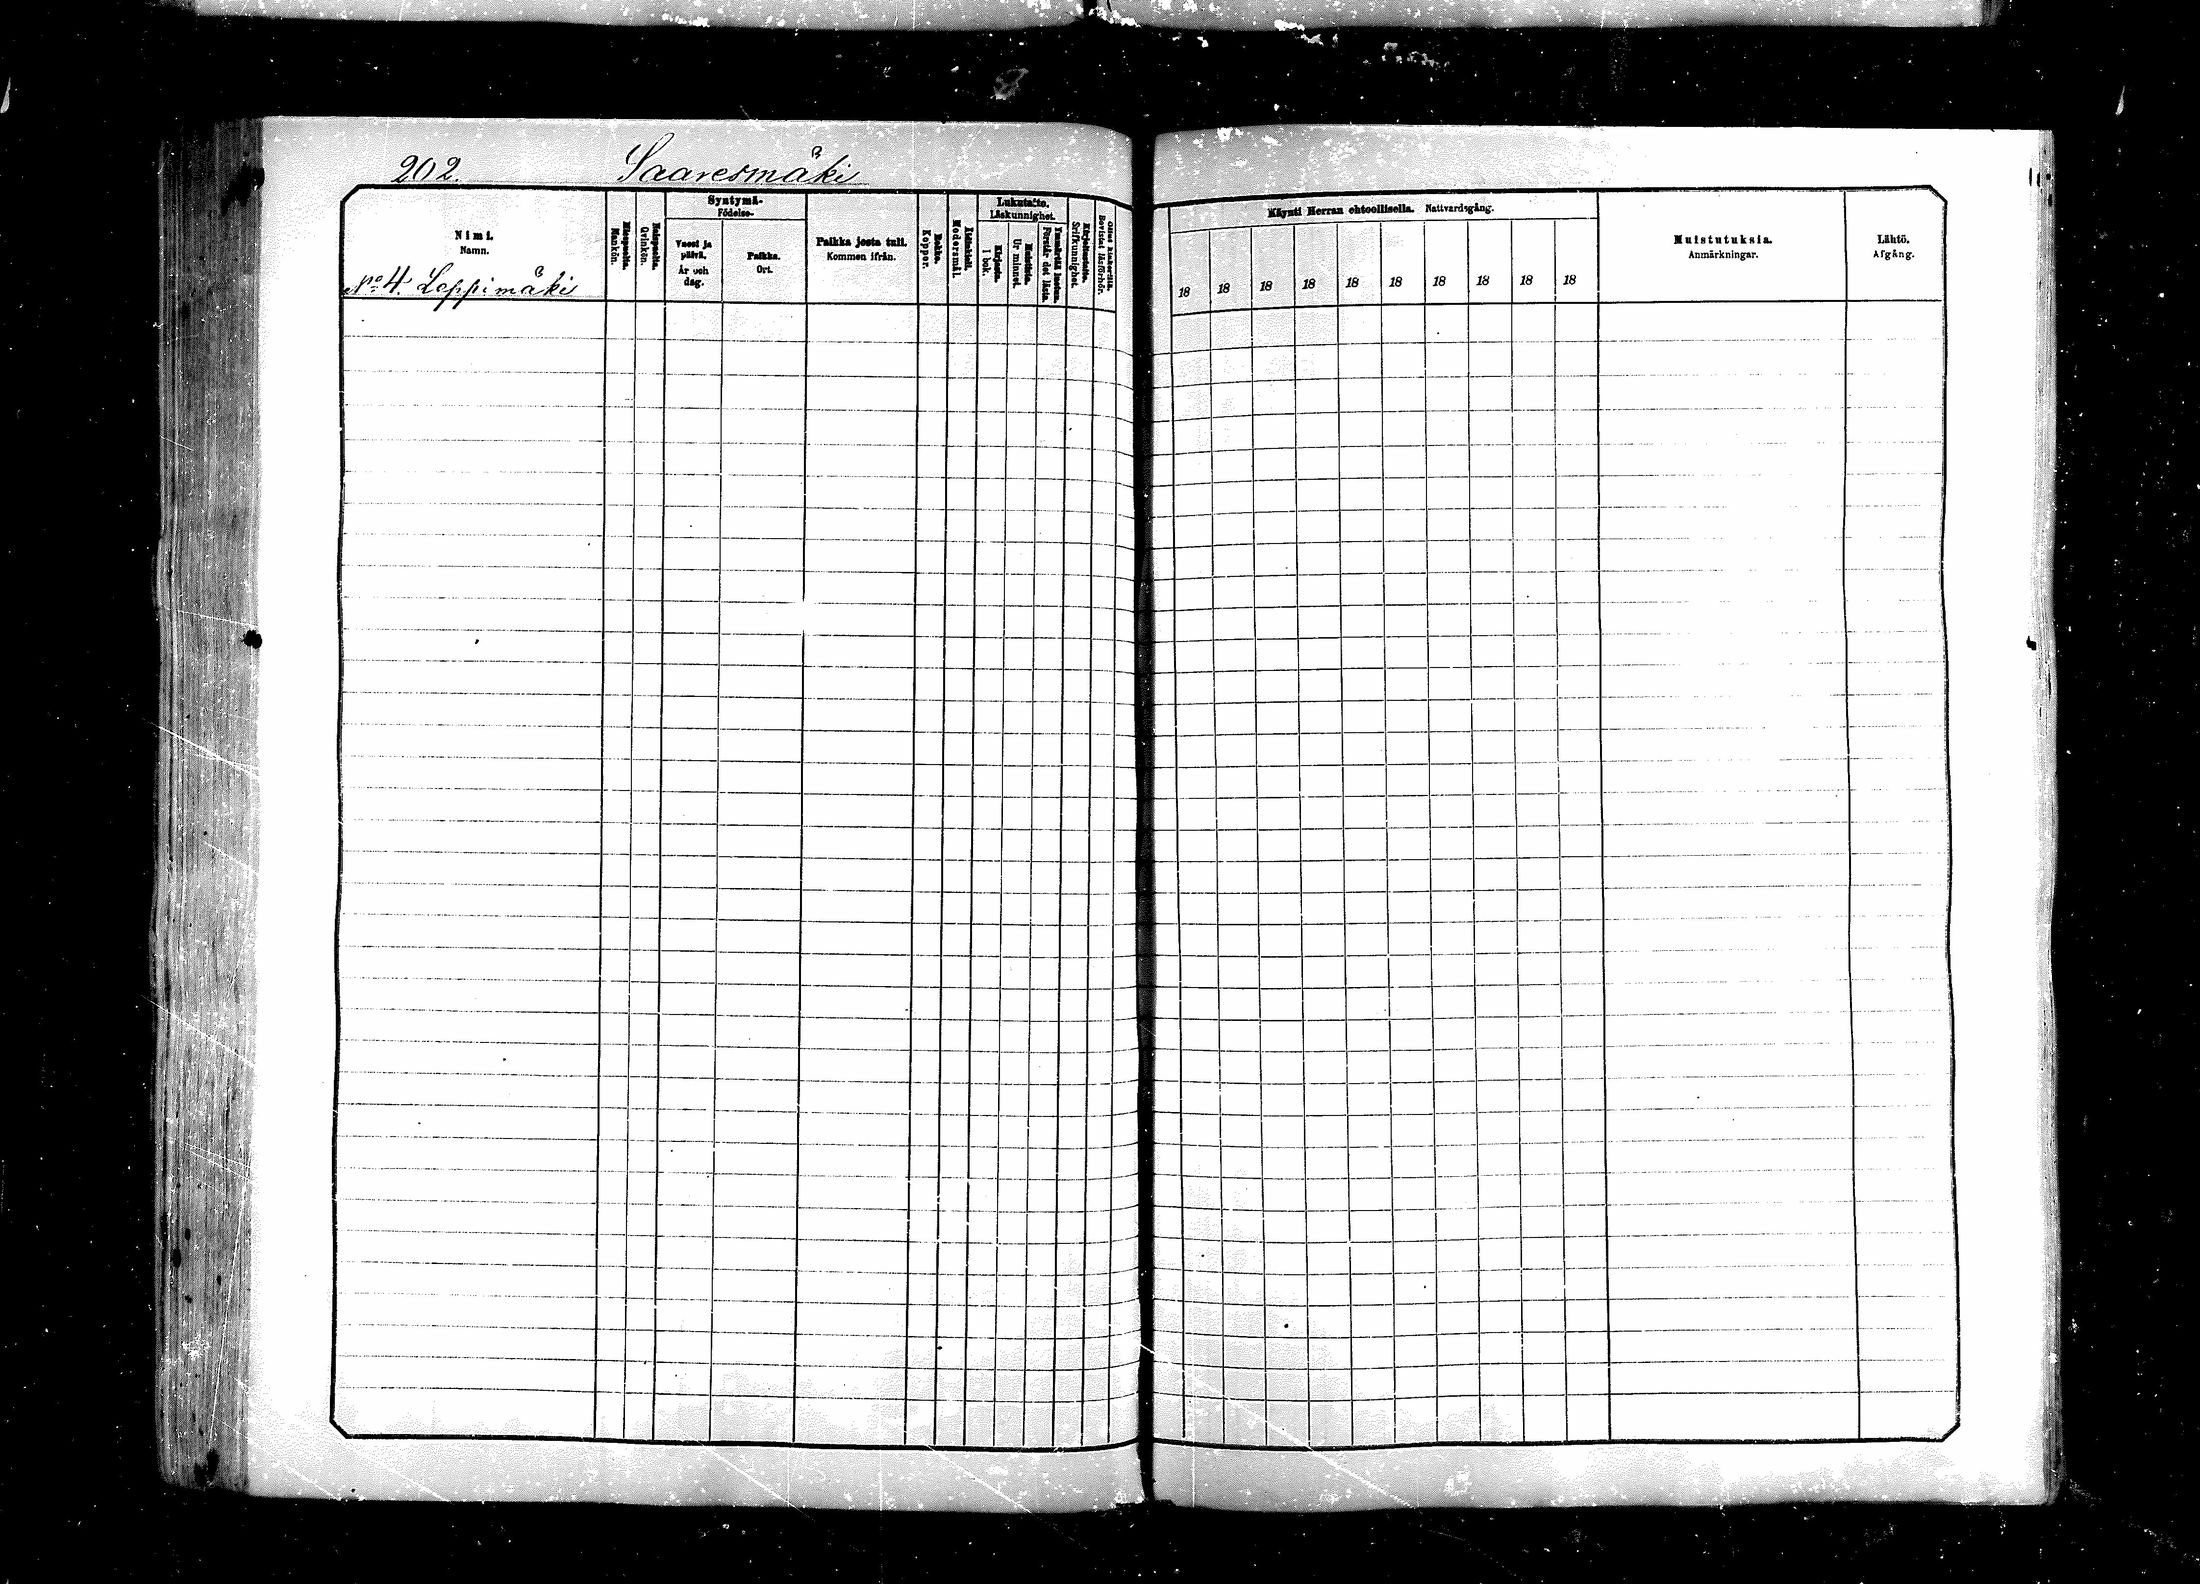 202. Saaresmäki
Nimi.
Namn.
No 4. Leppimäki
Miespuolia.
Mankön.
Naispuolia.
Qvinkön.
Syntymä-
Födelse-
Vuosi ja
päivä.
År och
dag.
Paikka.
Ort.
Paikka josta tuli.
Kommen ifrån.
Rokko.
Koppor.
Äidinkieli.
Modersmål.
Lukutaito.
Läskunnighet.
Kirjasta.
I bok.
Muistista.
Ur minnet.
Ymmärtää luetun.
Förstår det lästa.
Kirjoitustaito.
Skrifkunnighet.
Ollut kinkerillä.
Bevistat läsförhör.
Käynti Herran ehtoollisella. Nattvardsgång.
18 18 18 18 18 18 18 18 18 18
Muistutuksia.
Anmärkningar.
Lähtö.
Afgång.